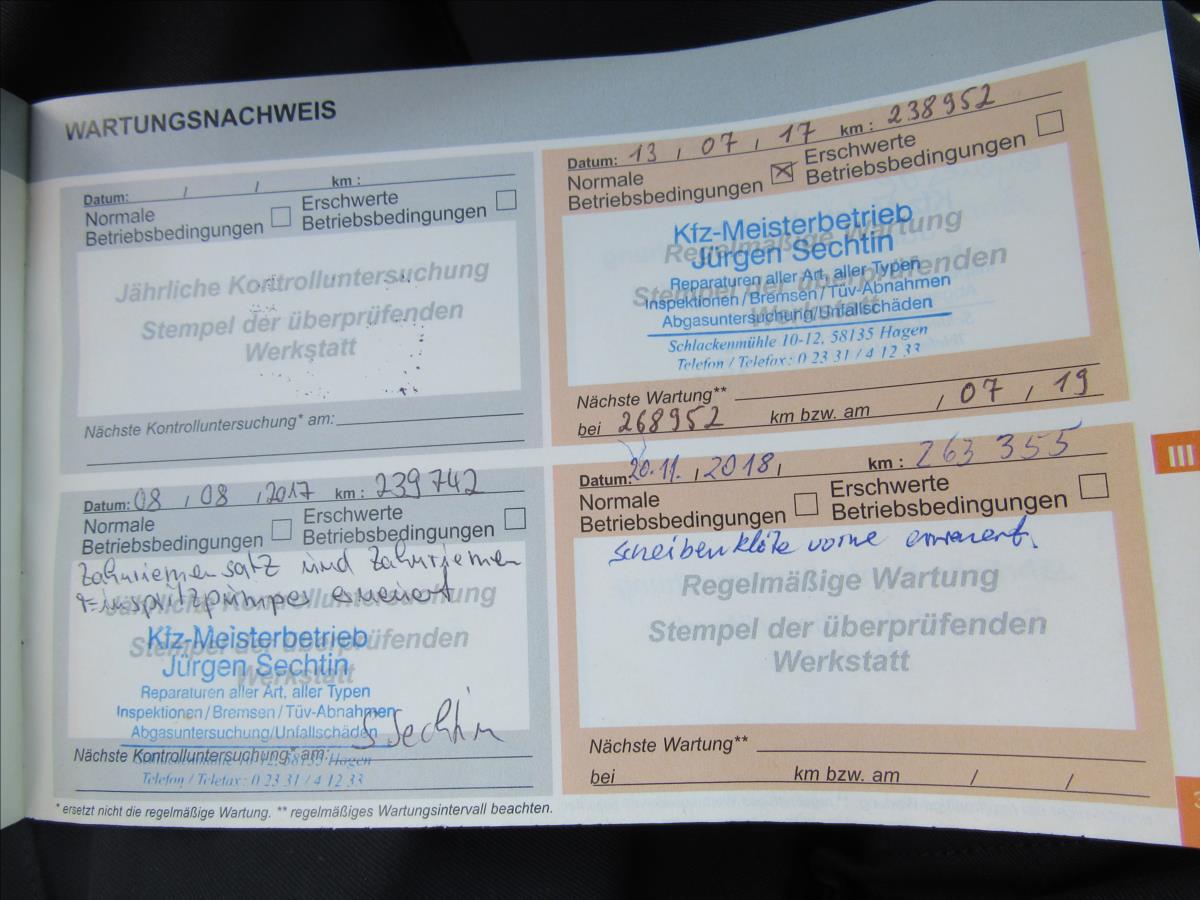 WARTUNGSNACHWEIS
Datum: / / km :
Normale Betriebsbedingungen
Erschwerte Betriebsbedingungen
Jährliche Kontrolluntersuchung
Stempel der überprüfenden
Werkstatt
Nächste Kontrolluntersuchung* am:
Datum: 13 , 07 , 17 km : 238952
Normale Betriebsbedingungen
Erschwerte Betriebsbedingungen
Regelmäßige Wartung
Stempel der überprüfenden
Werkstatt
Kfz-Meisterbetrieb
Jürgen Sechtin
Reparaturen aller Art, aller Typen
Inspektionen / Bremsen / Tüv-Abnahmen
Abgasuntersuchung/Unfallschäden
Schlackenmühle 10-12, 58135 Hagen
Telefon / Telefax: 0 23 31 / 4 12 33
Nächste Wartung**
bei 268952 km bzw. am , 07 , 19
Datum: 08 , 08 , 2017 km : 239742
Normale Betriebsbedingungen
Erschwerte Betriebsbedingungen
Zahnriemensatz und Zahnriemen
Einspritzpumpe erneuert
Jährliche Kontrolluntersuchung
Stempel der überprüfenden
Werkstatt
Kfz-Meisterbetrieb
Jürgen Sechtin
Reparaturen aller Art, aller Typen
Inspektionen / Bremsen / Tüv-Abnahmen
Abgasuntersuchung/Unfallschäden
Sechtin
Nächste Kontrolluntersuchung* am:
58135 Hagen
Telefon / Telefax: 0 23 31 / 4 12 33
Datum: 20.11. , 2018 , km : 263 355
Normale Betriebsbedingungen
Erschwerte Betriebsbedingungen
Scheibenklötze vorne erneuert.
Regelmäßige Wartung
Stempel der überprüfenden
Werkstatt
Nächste Wartung**
bei km bzw. am / /
* ersetzt nicht die regelmäßige Wartung. ** regelmäßiges Wartungsintervall beachten.
III